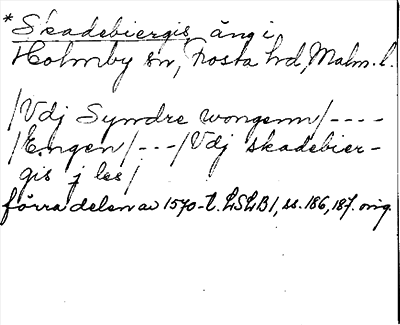 *Skadebiergis, äng i
Holmby sn, Frosta hd, Malm. l.
/Vdj Syndre wongenn/----
/Engen/---/Vdj skadebier-
gis j les/
förra delen av 1570-t. LSLB1, ss. 186, 187. orig.